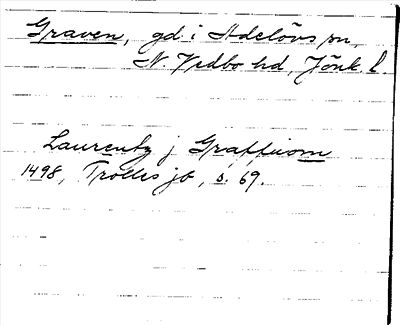 Graven, gd i Adelövs sn,
N. Vedbo hd, Jönk. l.
Laurentz j Graffuom
1498, Trolles jb, s. 69.